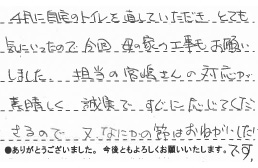 4月に自宅のトイレを直していただき とても
気にいったので 今回 母の家の工事も お願い
しました。 担当の宮嶋さんの対応が
素晴しく 誠実で すぐに応じてくだ
さるので 又 なにかの節はおねがいしたい
です。
●ありがとうございました。 今後ともよろしくお願いいたします。